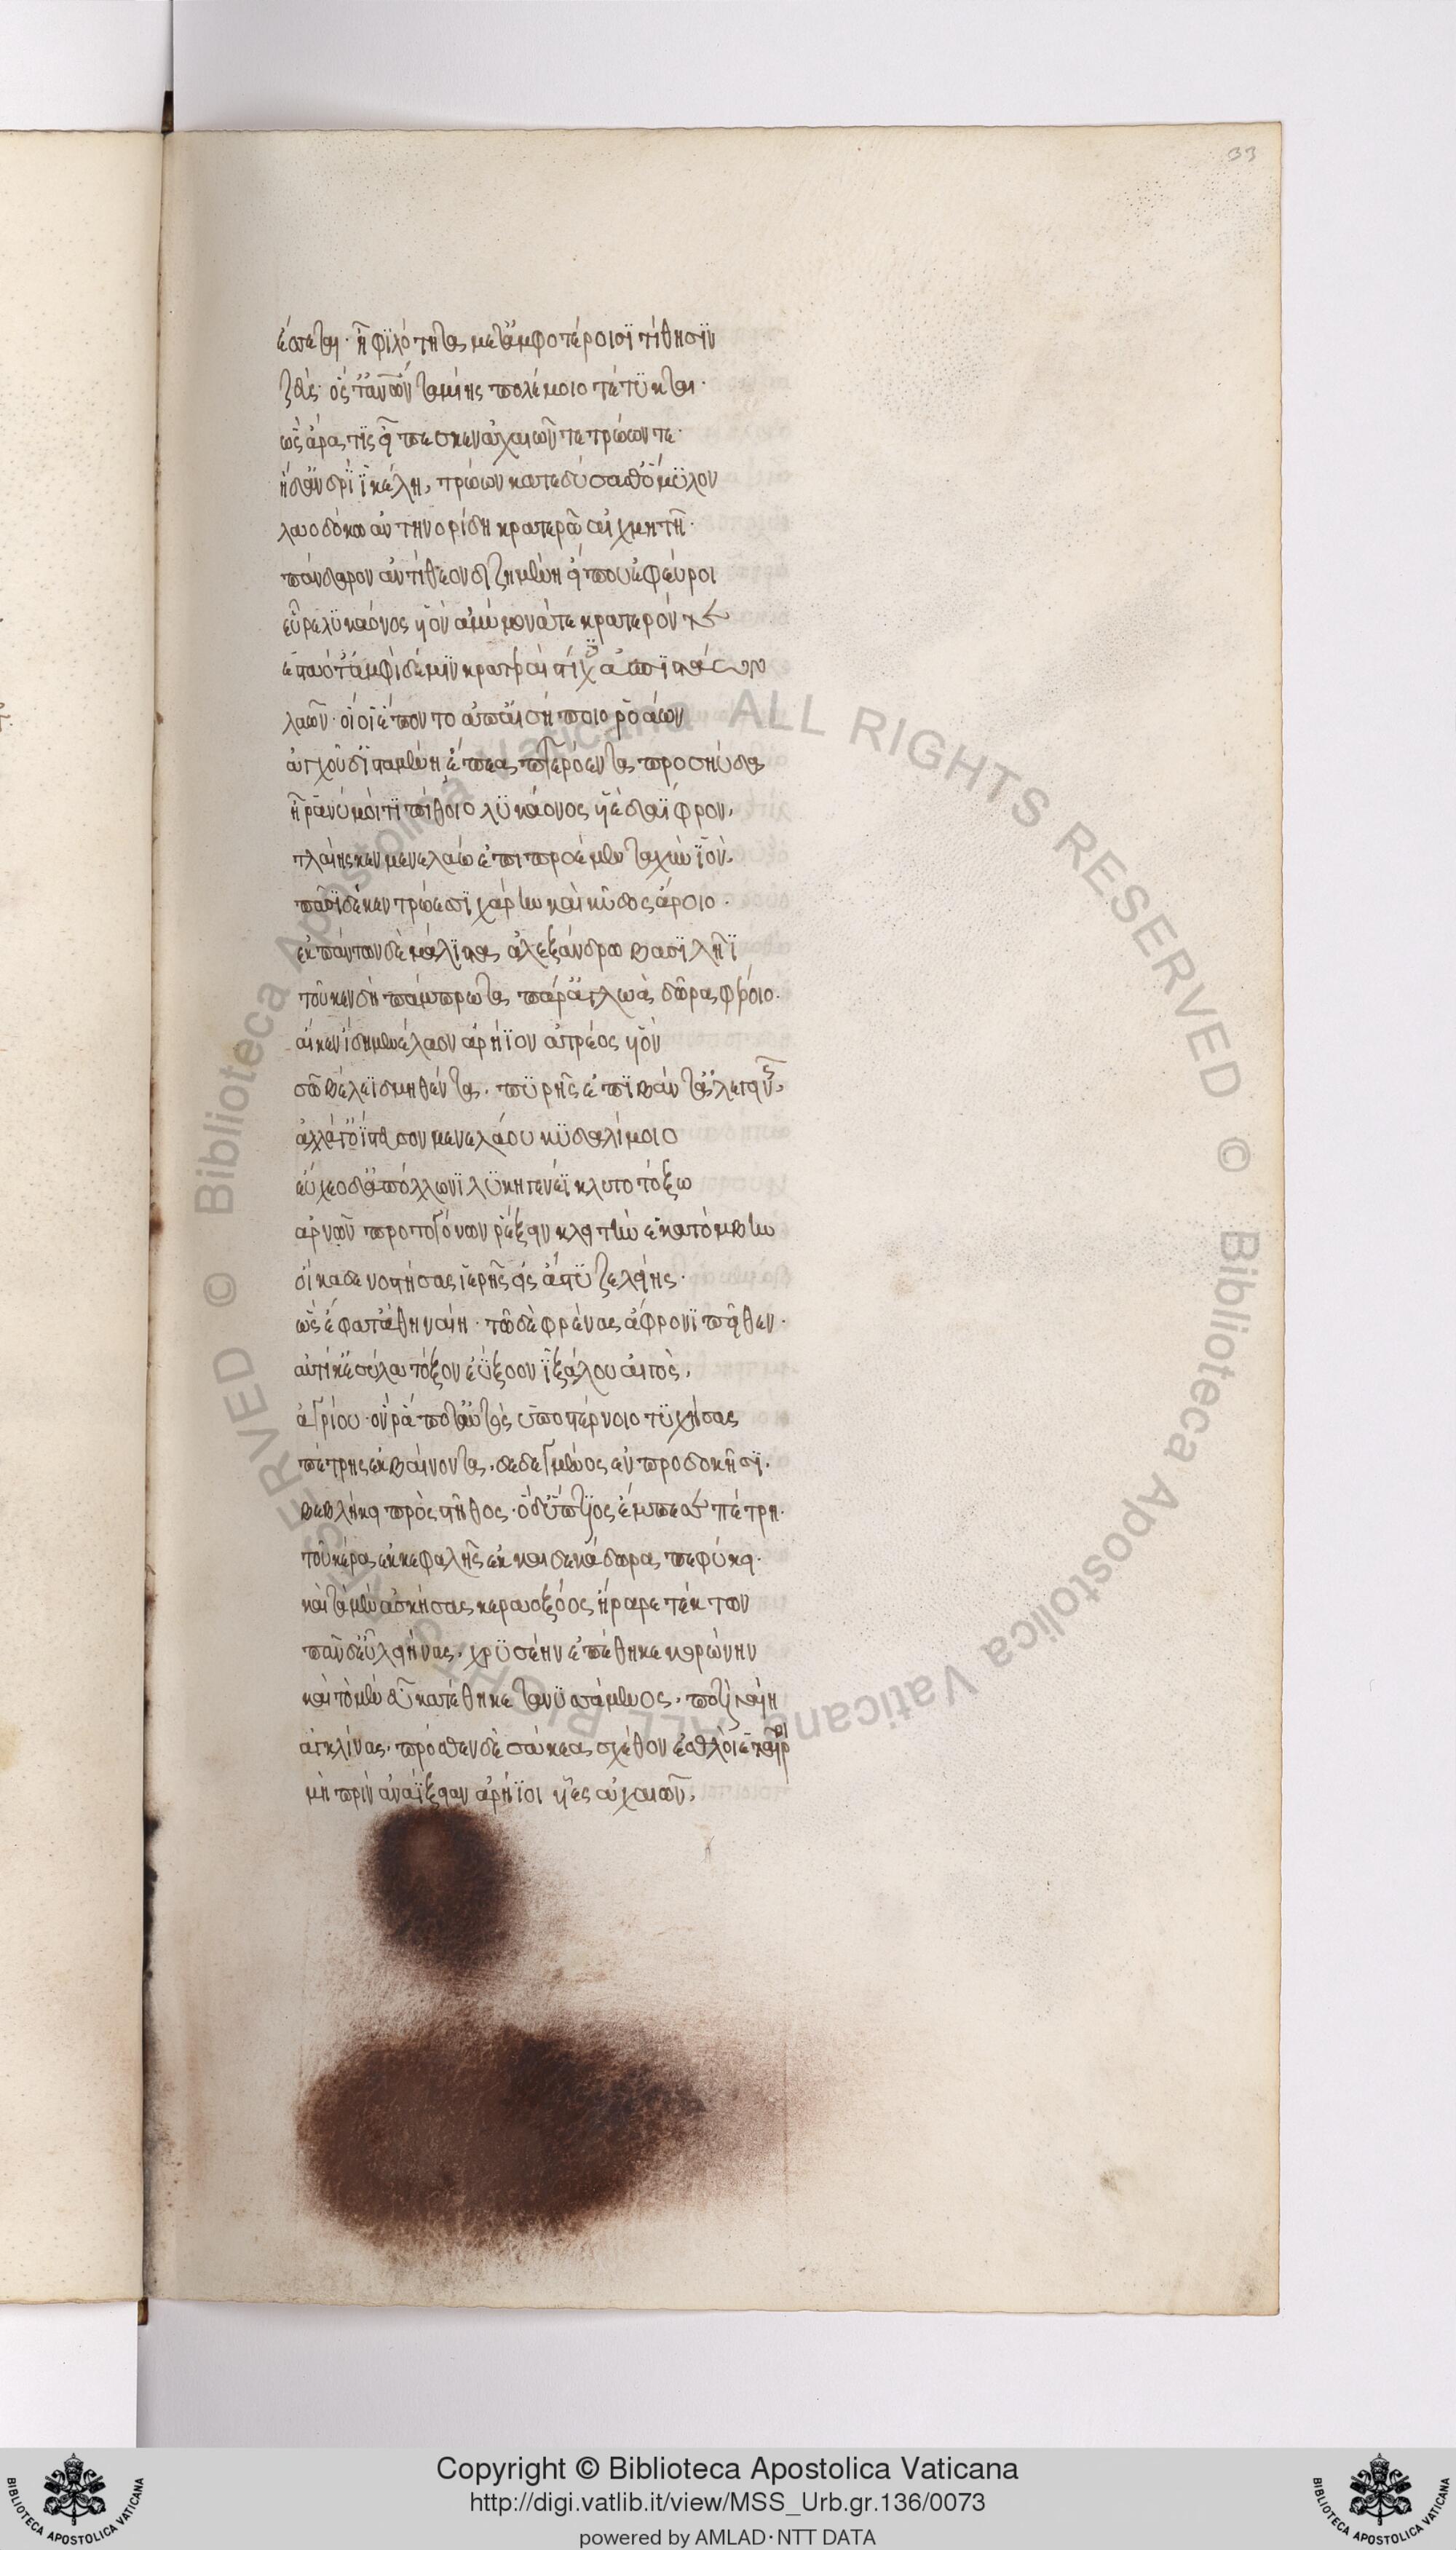 33
ἔσσεται· ἢ φιλότητα μετ' ἀμφοτέροισι τίθησιν
ζεύς· ὅς τ' ἀνθρώπων ταμίης πολέμοιο τέτυκται·
ὣς ἄρα τις εἴπεσκεν ἀχαιῶν τε τρώων τε·
ἡ δ' ἀνδρὶ ἰκέλη, τρώων κατεδύσαθ' ὅμιλον
λαοδόκω ἀντηνορίδη κρατερῶ αἰχμητῆ·
πάνδαρον ἀντίθεον διζημένη εἴ που ἐφεύροι
εὗρε λυκάονος υἱὸν ἀμύμονά τε κρατερόν τε
ἑσταότ' ἀμφὶ δέ μιν κρατεραὶ στίχες ἀσπιστάων
λαῶν· οἵ οἱ ἕποντο ἀπ' αἰσήποιο ῥοάων
ἀγχοῦ δ' ἱσταμένη ἔπεα πτερόεντα προσηύδα
ἦ ῥά νύ μοί τι πίθοιο λυκάονος υἱὲ δαΐφρον,
τλαίης κεν μενελάω ἐπιπροέμεν ταχὺν ἰὸν,
πᾶσι δέ κεν τρώεσι χάριν καὶ κῦδος ἄροιο·
ἐκ πάντων δὲ μάλιστα ἀλεξάνδρω βασιλῆϊ
τοῦ κεν δὴ πάμπρωτα πάρ' ἀγλαὰ δῶρα φέροιο·
αἴ κεν ἴδη μενέλαον ἀρήϊον ἀτρέος υἱὸν
σῶ βέλεϊ δμηθέντα, πυρῆς ἐπιβάντ' ἀλεγεινῆς,
ἀλλ' ἄγ' ὀΐστευσον μενελάου κυδαλίμοιο
εὔχεο δ' ἀπόλλωνι λυκηγενέϊ κλυτοτόξω
ἀρνῶν πρωτογόνων ῥέξειν κλειτὴν ἑκατόμβην
οἴκαδε νοστήσας ἱερῆς εἰς ἄστυ ζελείης·
ὣς ἔφατ' ἀθηναίη· τῶ δὲ φρένας ἄφρονι πεῖθεν·
αὐτίκ' ἐσύλα τόξον ἐΰξοον ἰξάλου αἰγὸς,
ἀγρίου· ὅν ῥά ποτ' αὐτὸς ὑπὸ στέρνοιο τυχήσας
πέτρης ἐκβαίνοντα, δεδεγμένος ἐν προδοκῆσι,
βεβλήκει πρὸς στῆθος· ὁ δ' ὕπτιος ἔμπεσε πέτρη·
τοῦ κέρα ἐκ κεφαλῆς ἑκκαιδεκάδωρα πεφύκει·
καὶ τὰ μὲν ἀσκήσας κεραοξόος ἤραρε τέκτων
πᾶν δ' εὖ λειήνας, χρυσέην ἐπέθηκε κορώνην
καὶ τὸ μὲν εὖ κατέθηκε τανυσσάμενος, ποτὶ γαίη
ἀγκλίνας, πρόσθεν δὲ σάκεα σχέθον ἐσθλοὶ ἑταῖροι
μὴ πρὶν ἀναΐξειαν ἀρήϊοι υἷες ἀχαιῶν,
Copyright © Biblioteca Apostolica Vaticana
http://digi.vatlib.it/view/MSS_Urb.gr.136/0073
powered by AMLAD·NTT DATA